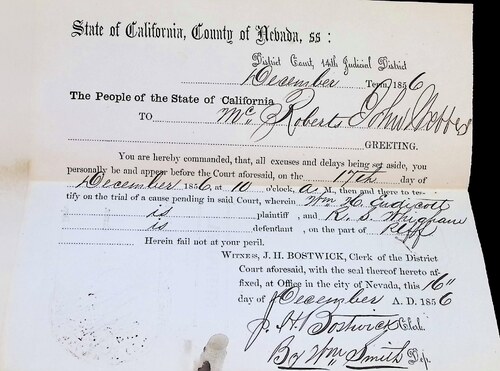 State of California, County of Nevada, ss :
District Court, 14th Judicial District
December Term, 1856
The People of the State of California
TO Mc Roberts John
GREETING.
You are hereby commanded, that, all excuses and delays being set aside, you
personally be and appear before the Court aforesaid, on the 17th day of
December 1856, at 10 o'clock, A. M., then and there to tes-
tify on the trial of a cause pending in said Court, wherein Wm H. Endicott
is plaintiff, and R. S. Whigham
is defendant, on the part of Plff
Herein fail not at your peril.
WITNESS, J. H. BOSTWICK, Clerk of the District
Court aforesaid, with the seal thereof hereto af-
fixed, at Office in the city of Nevada, this 16"
day of December A. D. 1856
J. H. Bostwick Clerk.
By Wm Smith Dep.